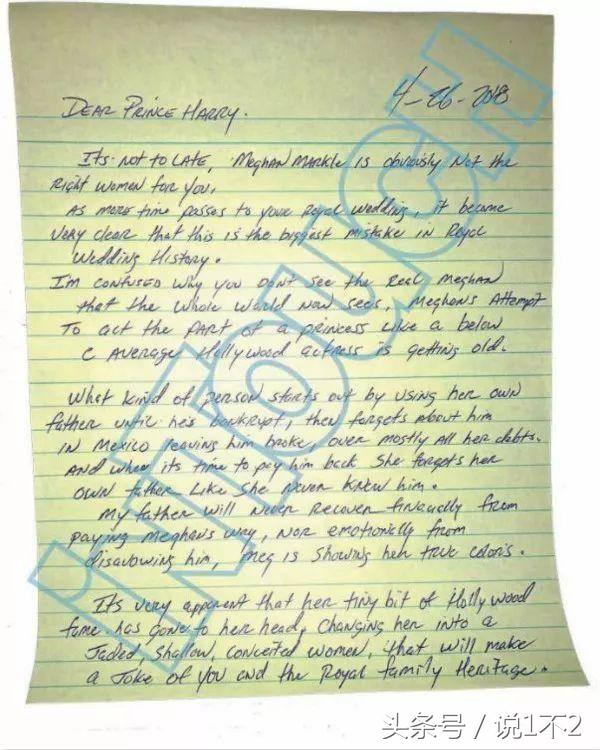 4-26-2018
DEAR PRINCE HARRY.
Its not to LATE, MEGHAN MARKLE is obviously Not the
Right women for you,
As more time passes to your Royal wedding, it became
very clear that this is the biggest mistake in Royal
Wedding History.
I'm confused why you Don't see the Real Meghan
that the whole world Now sees, Meghans Attempt
To act the PART of a princess Like a below
C Average Hollywood actress is getting old.
What kind of person starts out by using her own
father until he's bankrupt, then forgets about him
in Mexico leaving him broke, over mostly all her debts.
And when its time to pay him back She forgets her
own father Like She Never knew him.
My father will Never Recover financially from
paying Meghans way, NOR emotionally from
disavowing him, Meg is Showing her true colors.
It's very apparent that her tiny bit of Hollywood
fame has gone to her head, Changing her into a
Jaded, Shallow, conceited women, that will make
a Joke of you and the Royal family Heritage.
inTouch
头条号 / 说1不2